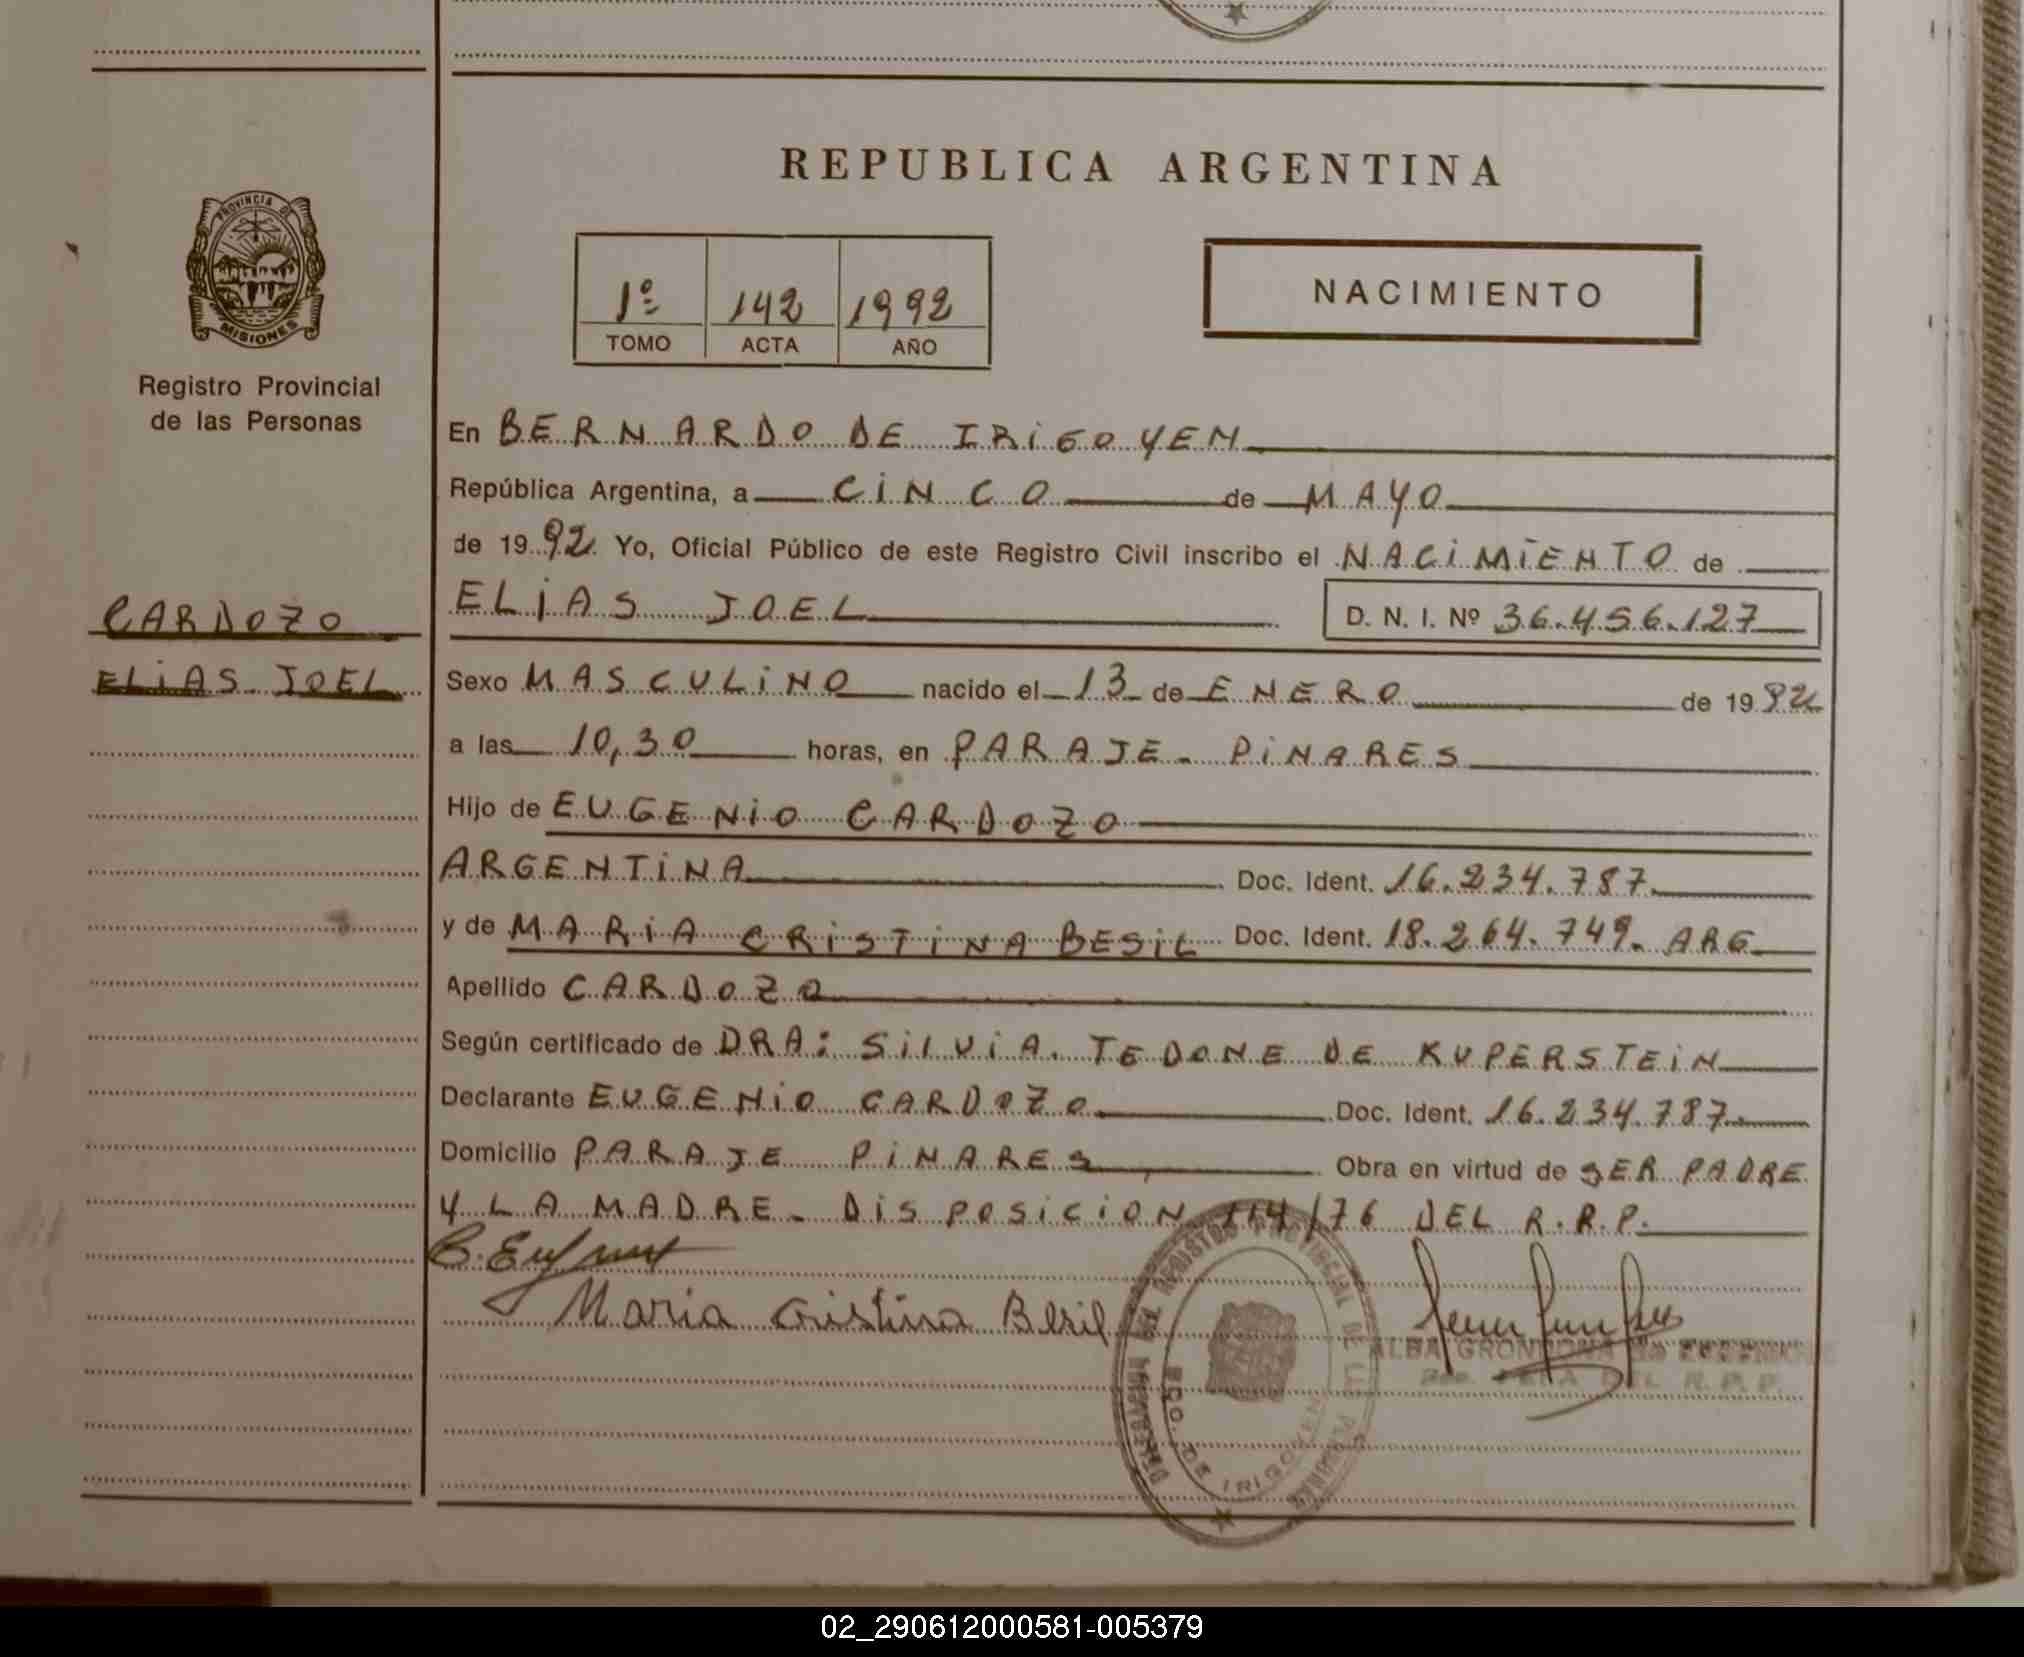 REPUBLICA ARGENTINA
PROVINCIA DE
MISIONES
Registro Provincial
de las Personas
1º 142 1992
TOMO ACTA AÑO
NACIMIENTO
En BERNARDO DE IRIGOYEN
República Argentina, a CINCO de MAYO
de 1992 Yo, Oficial Público de este Registro Civil inscribo el NACIMIENTO de
CARDOZO
ELIAS JOEL
ELIAS JOEL D. N. I. Nº 36.456.127
Sexo MASCULINO nacido el 13 de ENERO de 1992
a las 10,30 horas, en PARAJE - PINARES
Hijo de EUGENIO CARDOZO
ARGENTINA Doc. Ident. 16.234.787.
y de MARIA CRISTINA BESIL Doc. Ident. 18.264.749. ARG
Apellido CARDOZO
Según certificado de DRA: SILVIA. TEDONE DE KUPERSTEIN
Declarante EUGENIO CARDOZO Doc. Ident. 16.234.787.
Domicilio PARAJE PINARES Obra en virtud de SER PADRE
Y LA MADRE - DISPOSICION 114/76 DEL R.R.P.
Maria Cristina Besil
ALBA GRONDONA de
DEL R. P. P.
PROVINCIAL DE LAS PERSONAS
BDO. DE IRIGOYEN
02_290612000581-005379